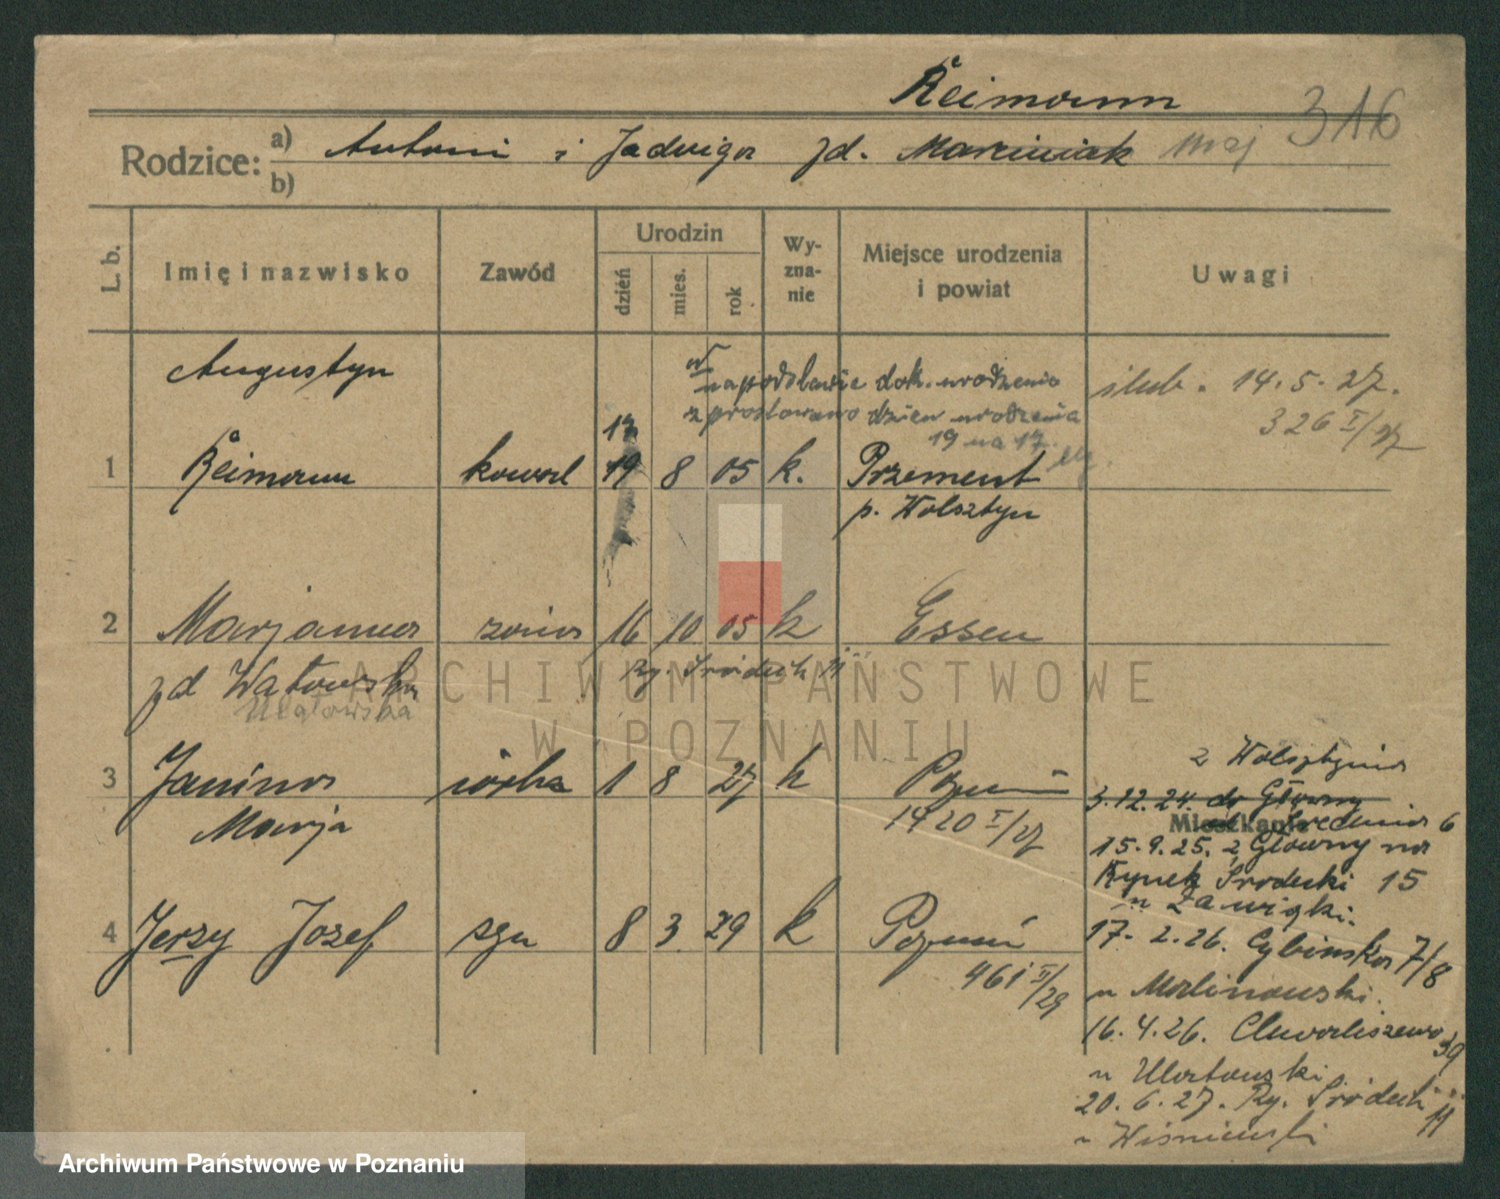 Reimann
Rodzice: a) Antoni i Jadwiga zd. Marciniak maj 316
b)
L. b.
Imię i nazwisko
Zawód
Urodzin
dzień
mies.
rok
Wy-
zna-
nie
Miejsce urodzenia
i powiat
Uwagi
Augustyn
na podstawie dok. urodzenia
sprostowano dzień urodzenia
19 na 17.
ślub. 14.5.27.
326 I/27
17
1 Reimann kowal 19 8 05 k. Przement
p. Wolsztyn
2 Marjanna żona 16 10 05 k Essen
zd Watowska
Ry. Śródecki 11
Ulatowska
3 Janina córka 1 8 27 k Poznań
Marja
1420 I/27
4 Jerzy Józef syn 8 3 29 k Poznań
461 II/29
z Wolsztyna
3.12.24. do Główny
Mieszkanie Średnia 6
15.9.25. z Główny na
Rynek Śródecki 15
u Zawigki.
17. 2.26. Cybińska 7/8
u Malinowski.
16.4.26. Chwaliszewo 39
u Ulatowski.
20.6.27. Ry. Śródecki 11
u Wiśniewski
ARCHIWUM PAŃSTWOWE
W POZNANIU
Archiwum Państwowe w Poznaniu